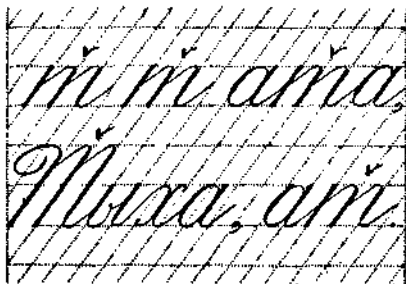 т̌ т̌ ат̌а,
Т̌ыха, ат̌.